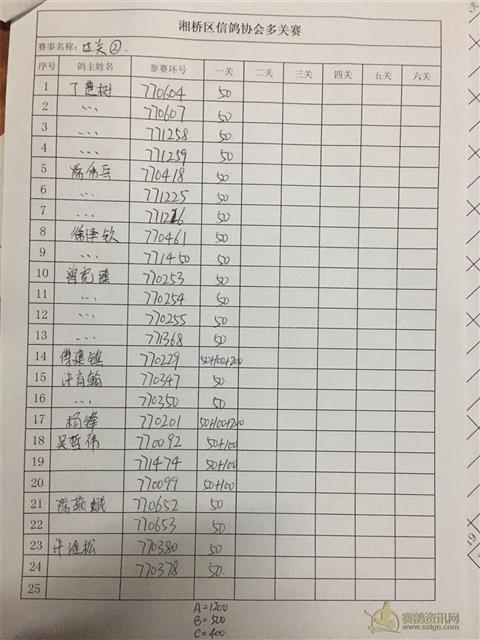 湘桥区信鸽协会多关赛
赛事名称: 关②.
序号 鸽主姓名 参赛环号 一关 二关 三关 四关 五关 六关
1 丁楚树 770604 50
2 ... 770607 50
3 ... 771258 50
4 ... 771259 50
5 770418 50
6 ... 771225 50
7 ... 771216 50
8 徐泽钦 770461 50
9 ... 771450 50
10 770253 50
11 ... 770254 50
12 ... 770255 50
13 ... 771368 50
14 770229 50+100+200
15 770347 50
16 ... 770350 50
17 杨锋 770201 50+100+200
18 吴哲伟 770092 50+100
19 771474 50+100
20 770099 50+100
21 斌 770652 50
22 770653 50
23 许 松 770380 50
24 770378 50.
25
A=1200
B=500
C=400
赛鸽资讯网
www.saige.com